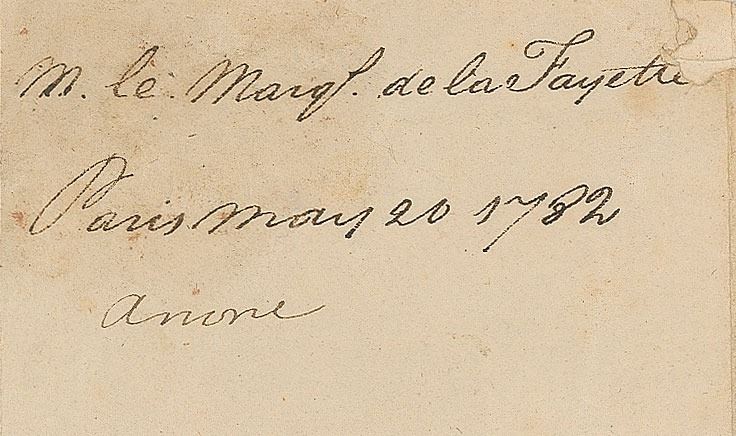 M. le Marqs. de la Fayette
Paris may 20 1782
anone